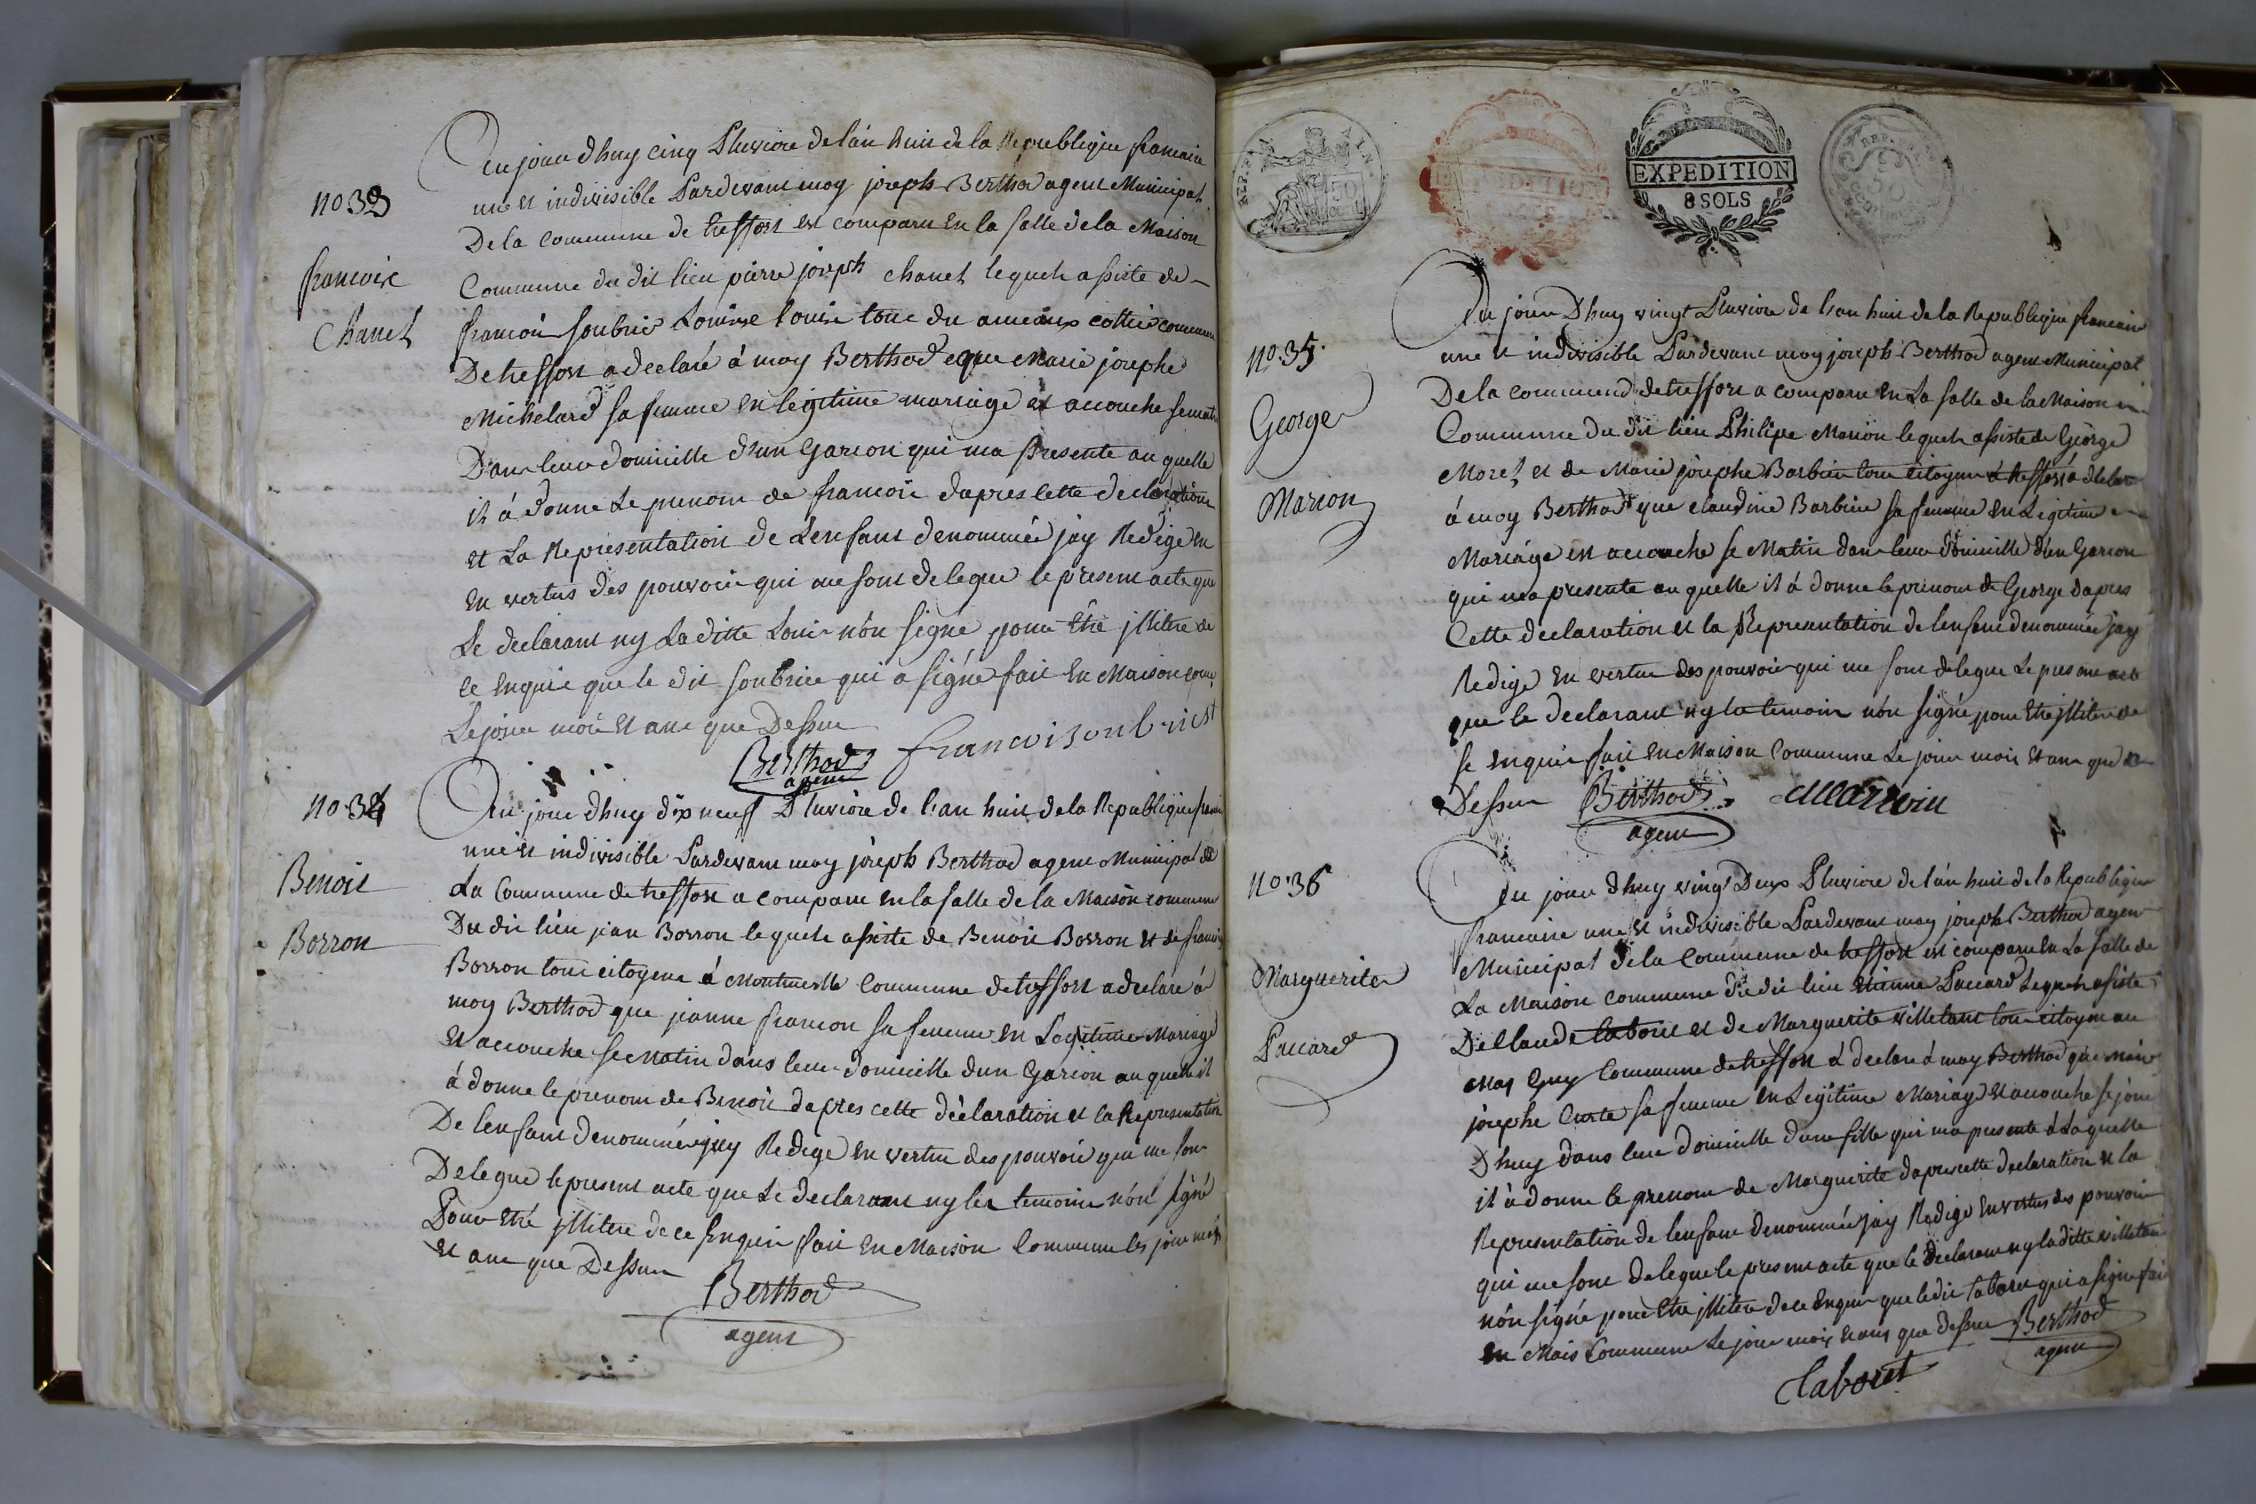 no 33
francoix
Chanel
Du jour dhuy cinq Pluviore de lán huit de la Republique francaise
une et indivisible Pardevant moy joseph Berthod agent Municipal
De la commune de treffort est comparu En la Salle de la Maison
Commune du dit lieu pierre joseph chanel lequel assiste de
francois soubrie Louise louise tous du commune
De treffort a declaré à moy Berthod que Marie josephe
Michelard sa femme en legitime mariage et acouche se matin
Dans leur domicille d'un Garcon qui ma presente au quelle
il á donne Le prenom de francois dapres cette declaration
et La Representation de Lenfant denommée jay Redigé en
en vertus des pouvoir qui me sont delegue le present acte que
Le declarant ny La ditte Loui nón signé pour être jllitere de
ce Enquis que le dit soubrie qui a signé fait En Maison com
Le jour mois et ans que Dessus
Berthod francoisoubriest
agent
no 34
Benoit
Borron
Du jour dhuy dix neuf Pluviore de l'an huit de la Republique
une et indivisible Pardevant moy joseph Berthod agent Municipal de
La Commune de treffort a comparu en la Salle de la Maison commune
Du dit lieu jean Borron lequel assiste de Benoit Borron et de francois
Borron tous citoyens á Commune de treffort a declaré à
moy Berthod que jeanne francon sa femme en Legitime Mariage
Et acouche se Matin dans leur domicille dun Garcon au quelle il
á donne le prenom de Benoit dapres cette déclaration et la Representation
De lenfant denommée jay Redige en vertus des pouvoir qui me son
Delegue le present acte que Le declarant ny les temoins nón signé
Pour Etre jllitere de ce Enquis fait En Maison Commune les jour mois
et ans que Dessus
Berthod
agent
REP. FRA.
50
EXPEDITION
EXPEDITION
8 SOLS
REP. FRA.
50
CENTIMES
no 35
George
Marion
Du jour Dhuy vingt Pluviore de l'an huit de la Republique francaise
une et indivisible Pardevant moy joseph Berthod agent Municipal
De la commune de treffort a comparu En La Salle de la Maison
Commune du dit lieu Philipe Marion lequel assiste de George
Morel et de Marie josephe Barbier tous citoyen á treffort a declare
á moy Berthod que claudine Barbier sa femme en Legitime
Mariage est acouche se Matin dans leur domicille d'un Garcon
qui ma presente au quelle il á donne le prenom de George dapres
Cette declaration et la Representation de lenfant denommée jay
Redige En vertus des pouvoir qui me sont delegue Le present acte
que le declarant ny les temoin nón signé pour Etre jllitere de
se enquis fait En Maison Commune Le jour mois et ans que
Dessus Berthod Marion
agent
no 36
Marguerite
Paccard
Du jour dhuy vingt Deux Pluviore de lán huit de la Republique
francaise une et indivisible Pardevant moy joseph Berthod agent
Municipal de la Commune de treffort est comparu En La Salle de
La Maison commune du dit lieu Etienne Paccard Lequel assiste
De Claude laboret et de Marguerite villetant tous citoyens au
Commune de treffort á declaré á moy Berthod que marie
josephe Curta sa femme en Legitime Mariage et acouche se jour
Dhuy dans leur domicille dune fille qui ma presente á Laquelle
il á donne le prenom de Marguerite dapres cette declaration et la
Representation de lenfant denommée jay Redige En vertus des pouvoir
qui me sont delegue le present acte que le declarant ny la ditte villetant
nón signé pour Etre jllitere de ce Enquis que ledit laboret qui a signe fait
En Mais Commune Le jour mois et ans que dessus Berthod
agent
Claboret